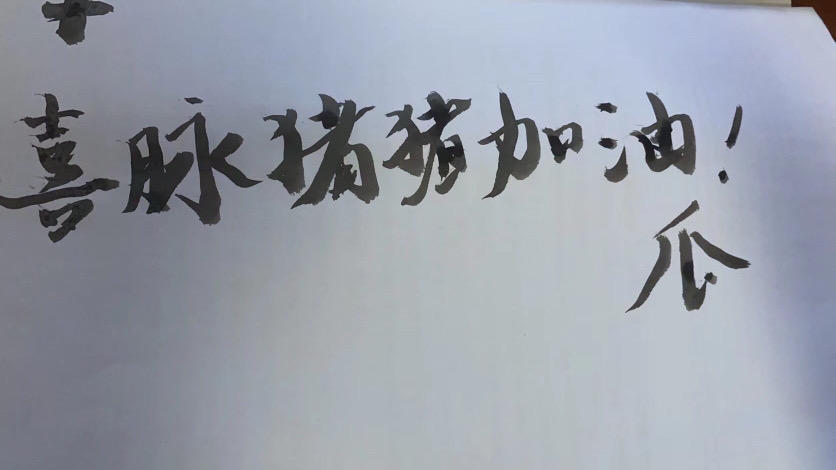 喜脉猪猪加油!
瓜